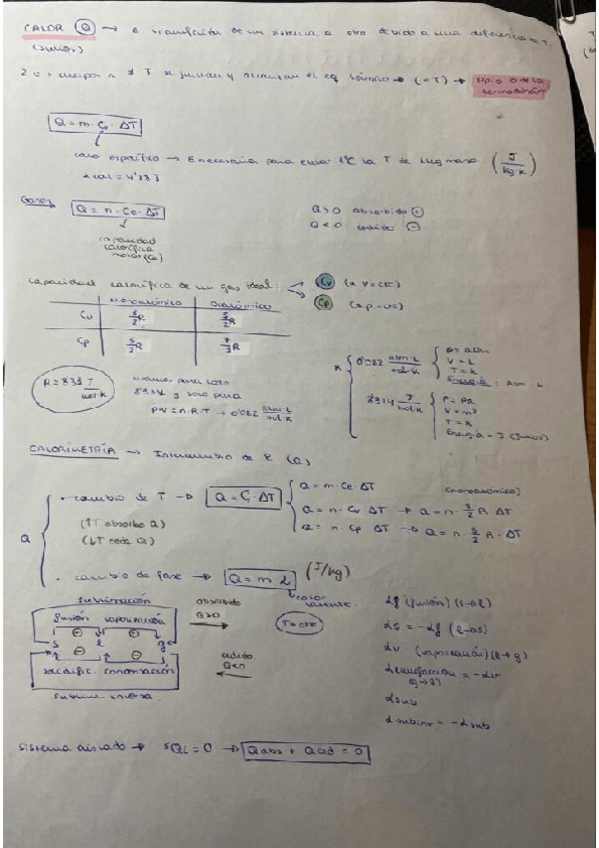 CALOR (Q) → E transferida de un sistema a otro debido a una diferencia de T.
(Julios)
2 o + cuerpos a ≠ T se juntan y alcanzan el eq térmico → (= T) → Ppio 0 de la termodinám
Q = m · Ce · ΔT
calor específico → E necesaria para elevar 1°C la T de 1kg masa (J / kg·K)
1 cal = 4'18 J
Gases
Q = n · Ce · ΔT
Q > 0 absorbido (+)
Q < 0 cedido (-)
capacidad
calorífica
molar (Ce)
capacidad calorífica de un gas ideal: Cv (a V = cte)
Cp (a p = cte)
Monoatómico Diatómico
Cv 3/2 R 5/2 R
Cp 5/2 R 7/2 R
R = 8'31 J / mol·K
usamos para todo
8'314 y solo para
PV = n·R·T → 0'082 atm·L / mol·K
R { 0'082 atm·L / mol·K { P = atm
V = L
T = K
Energía: Atm · L
8'314 J / mol·K { P = Pa
V = m³
T = K
Energía = J (Julios)
CALORIMETRÍA → Intercambio de E (Q)
Q { · cambio de T → Q = C · ΔT { Q = m · Ce · ΔT
(monoatómico)
Q = n · Cv ΔT → Q = n · 3/2 R · ΔT
Q = n · Cp ΔT → Q = n · 5/2 R · ΔT
(↑T absorbe Q)
(↓T cede Q)
· cambio de fase → Q = m · L (J/kg)
calor
latente
T = cte
sublimación
fusión vaporización
s l g
solidific. condensación
sublim. inversa
absorbido
Q > 0
cedido
Q < 0
Lf (fusión) (s→l)
Ls = -Lf (l→s)
Lv (vaporización) (l→g)
= -Lv
(g→l)
Lsub
Lsubinv = -Lsub
Sistema aislado → ΣQi = 0 → Qabs + Qced = 0